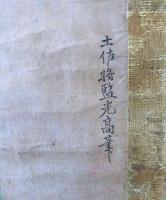 土佐將監光高筆